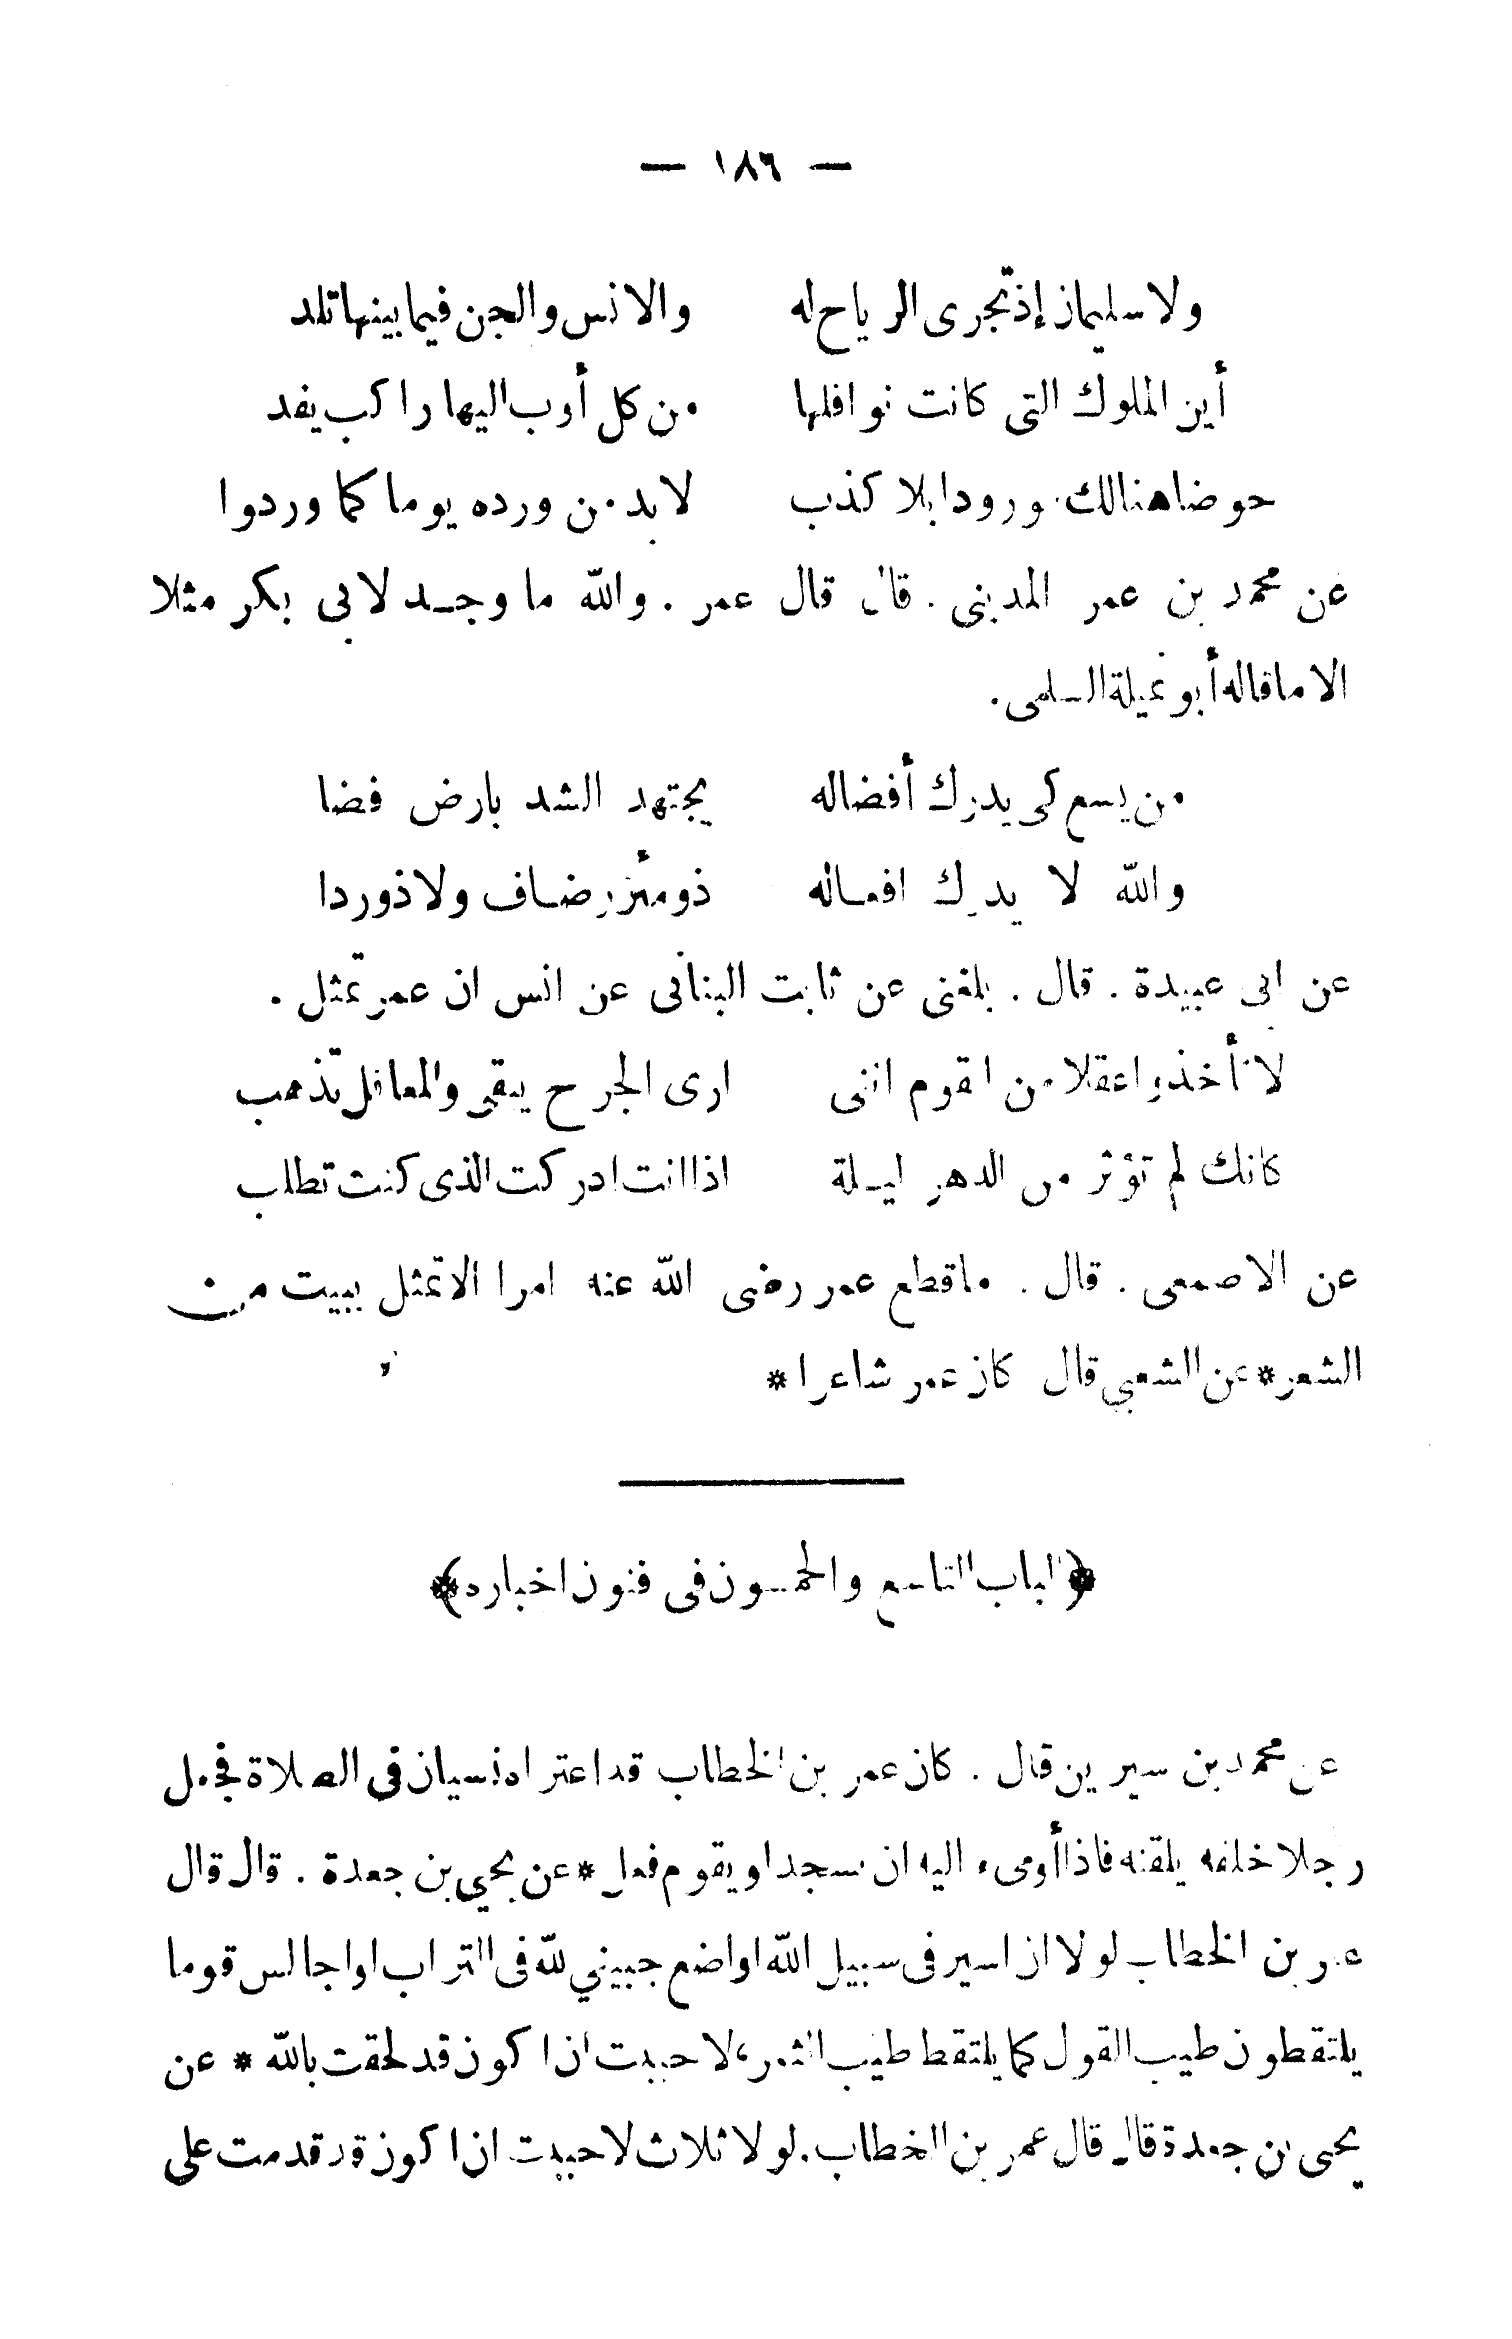 — ١٨٦ —
ولا سليمان إذ تجرى الرياح له والانس والجن فيما بينها تلد
أين الملوك التى كانت نوافلها من كل أوب اليها راكب يفد
حوضا هنالك ورودا بلا كذب لابد من ورده يوما كما وردوا
عن محمد بن عمر المدينى . قال قال عمر . والله ما وجد لابى بكر مثلا
الا ما قاله أبو غيلة السلمى .
من يسع كى يدرك أفضاله يجتهد الشد بارض فضا
والله لا يدرك افعاله ذو مئزر ضاف ولا ذو ردا
عن ابى عبيدة . قال . بلغنى عن ثابت البنانى عن انس ان عمر تمثل .
لا تأخذوا عقلا من القوم اننى ارى الجرح يبقى والمعاقل تذهب
كانك لم تؤثر من الدهر ليلة اذا انت ادركت الذى كنت تطلب
عن الاصمعى . قال . ماقطع عمر رضى الله عنه امرا الا تمثل ببيت من
الشعر * عن الشعبي قال كان عمر شاعرا *
﴿ الباب التاسع والخمسون فى فنون اخباره ﴾
عن محمد بن سيرين قال . كان عمر بن الخطاب قد اعتراه نسيان فى الصلاة فجعل
رجلا خلفه يلقنه فاذا أومىء اليه ان يسجد او يقوم فعل * عن يحيي بن جعدة . قال قال
عمر بن الخطاب لولا ان اسير فى سبيل الله او اضع جبيني لله فى التراب او اجالس قوما
يلتقطون طيب القول كما يلتقط طيب الثمر، لاحببت ان اكون قد لحقت بالله * عن
يحيى بن جعدة قال قال عمر بن الخطاب . لولا ثلاث لاحببت ان اكون قد قدمت على